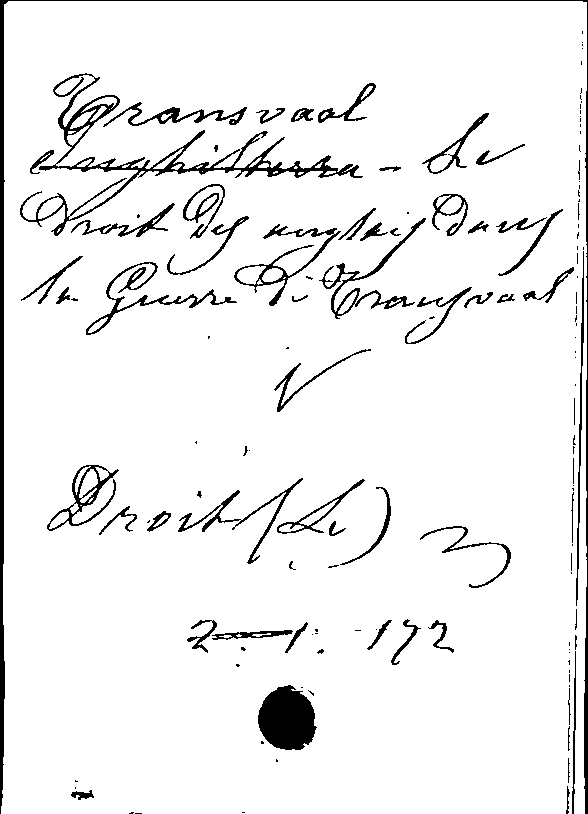 Transvaal
Inghilterra - Le
Droit des anglais dans
la Guerre di Transvaal
V
Droit (Le)
2 - 1. 172